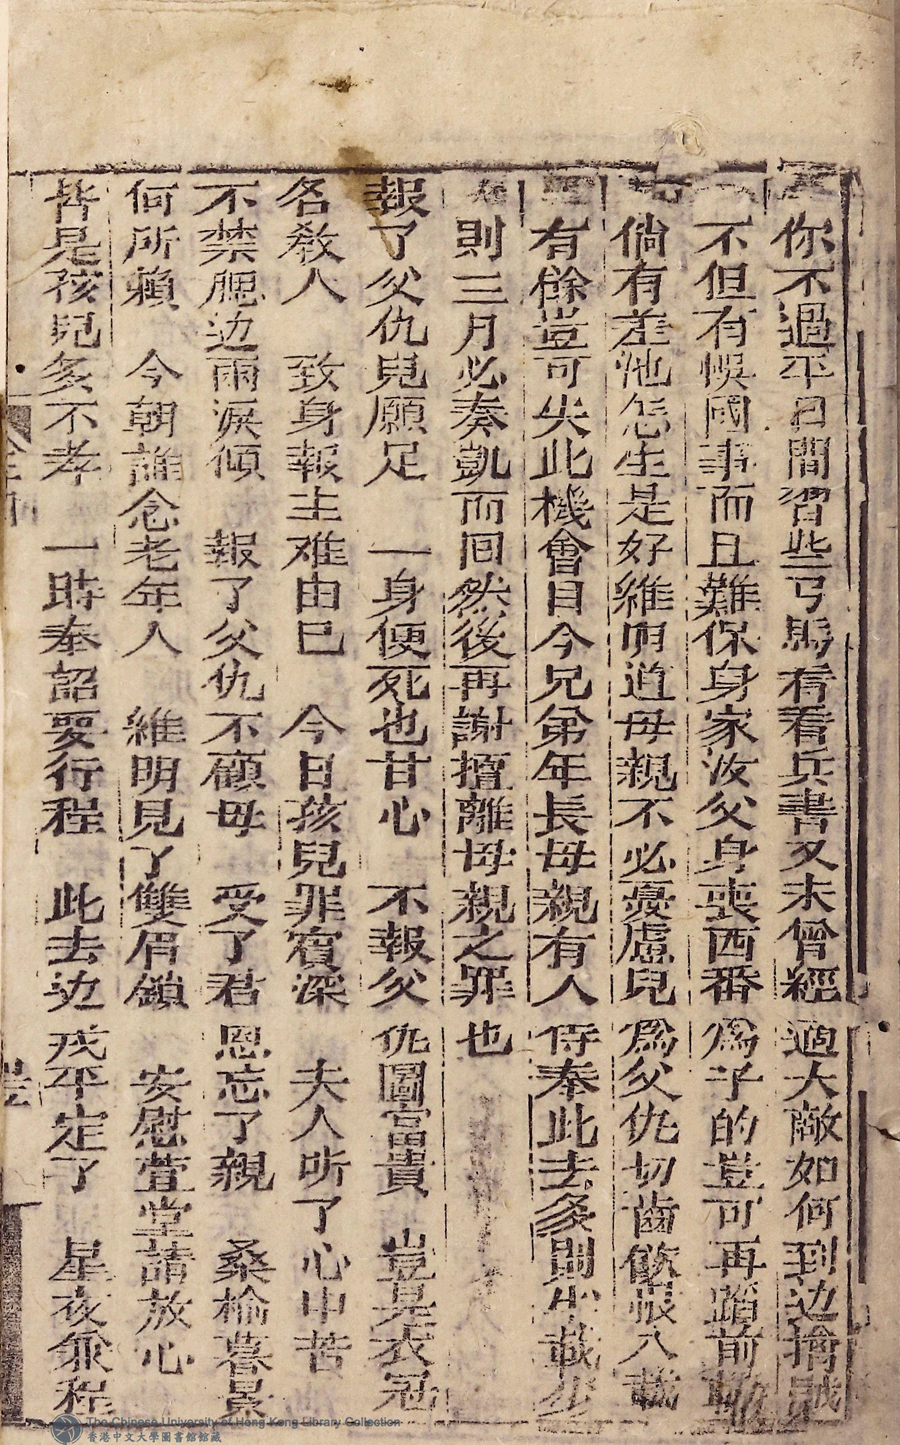 你不過平日間習些弓馬看看兵書又未曾經過大敵如何到边擒賊
不但有悞國事而且難保身家汝父身喪西番為子的豈可再蹈前
倘有差池怎生是好維明道母親不必憂慮兒為父仇切齒飲恨八載
有餘豈可失此機會目今兄弟年長母親有人侍奉此去多則半載少
則三月必奏凱而囘然後再謝擅離母親之罪也
報了父仇兒願足　一身便死也甘心　不報父仇圖富貴　豈是衣冠
名教人　致身報主难由己　今日孩兒罪孽深　夫人听了心中苦
不禁腮边雨淚傾　報了父仇不顧母　受了君恩忘了親　桑榆暮景
何所賴　今朝誰念老年人　維明見了雙眉鎖　安慰萱堂請放心
皆是孩兒多不孝　一時奉詔要行程　此去边戎平定了　星夜乘程
The Chinese University of Hong Kong Library Collection
香港中文大學圖書館館藏